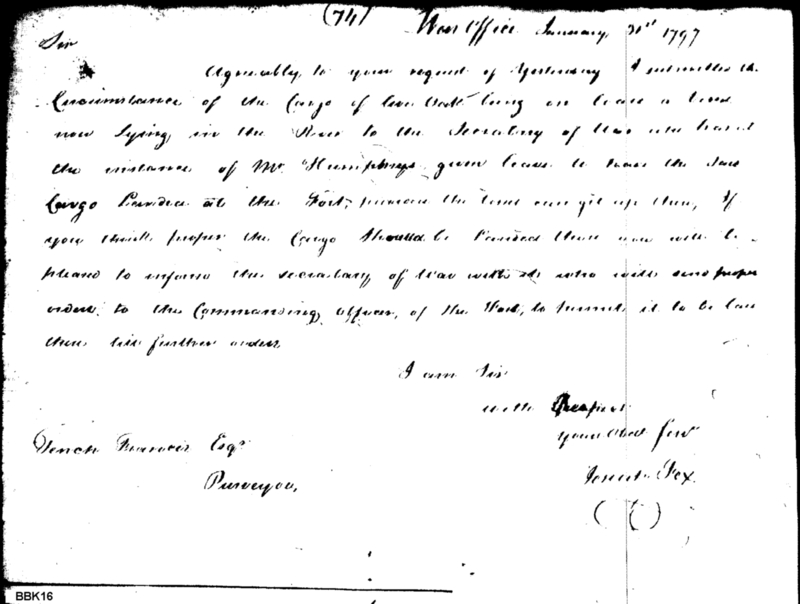 (74)
War Office January 31st 1797
Sir
Agreeably to your request of Yesterday I submitted the
Circumstance of the Cargo of live Oak being on board a
now Lying in the River to the Secretary of War who has at
the instance of Mr Humphreys given leave to have the said
Cargo Landed at the Fort, provided the can get up there, If
you think proper the Cargo Should be Landed there you will be
pleased to inform the Secretary of War who will send proper
orders to the Commanding officer, of the Fort, to permit it to be
there till further orders
I am Sir
with Respect
your Obed Serv
Tench Francis Esqr
Purveyor,
Fox
BBK16